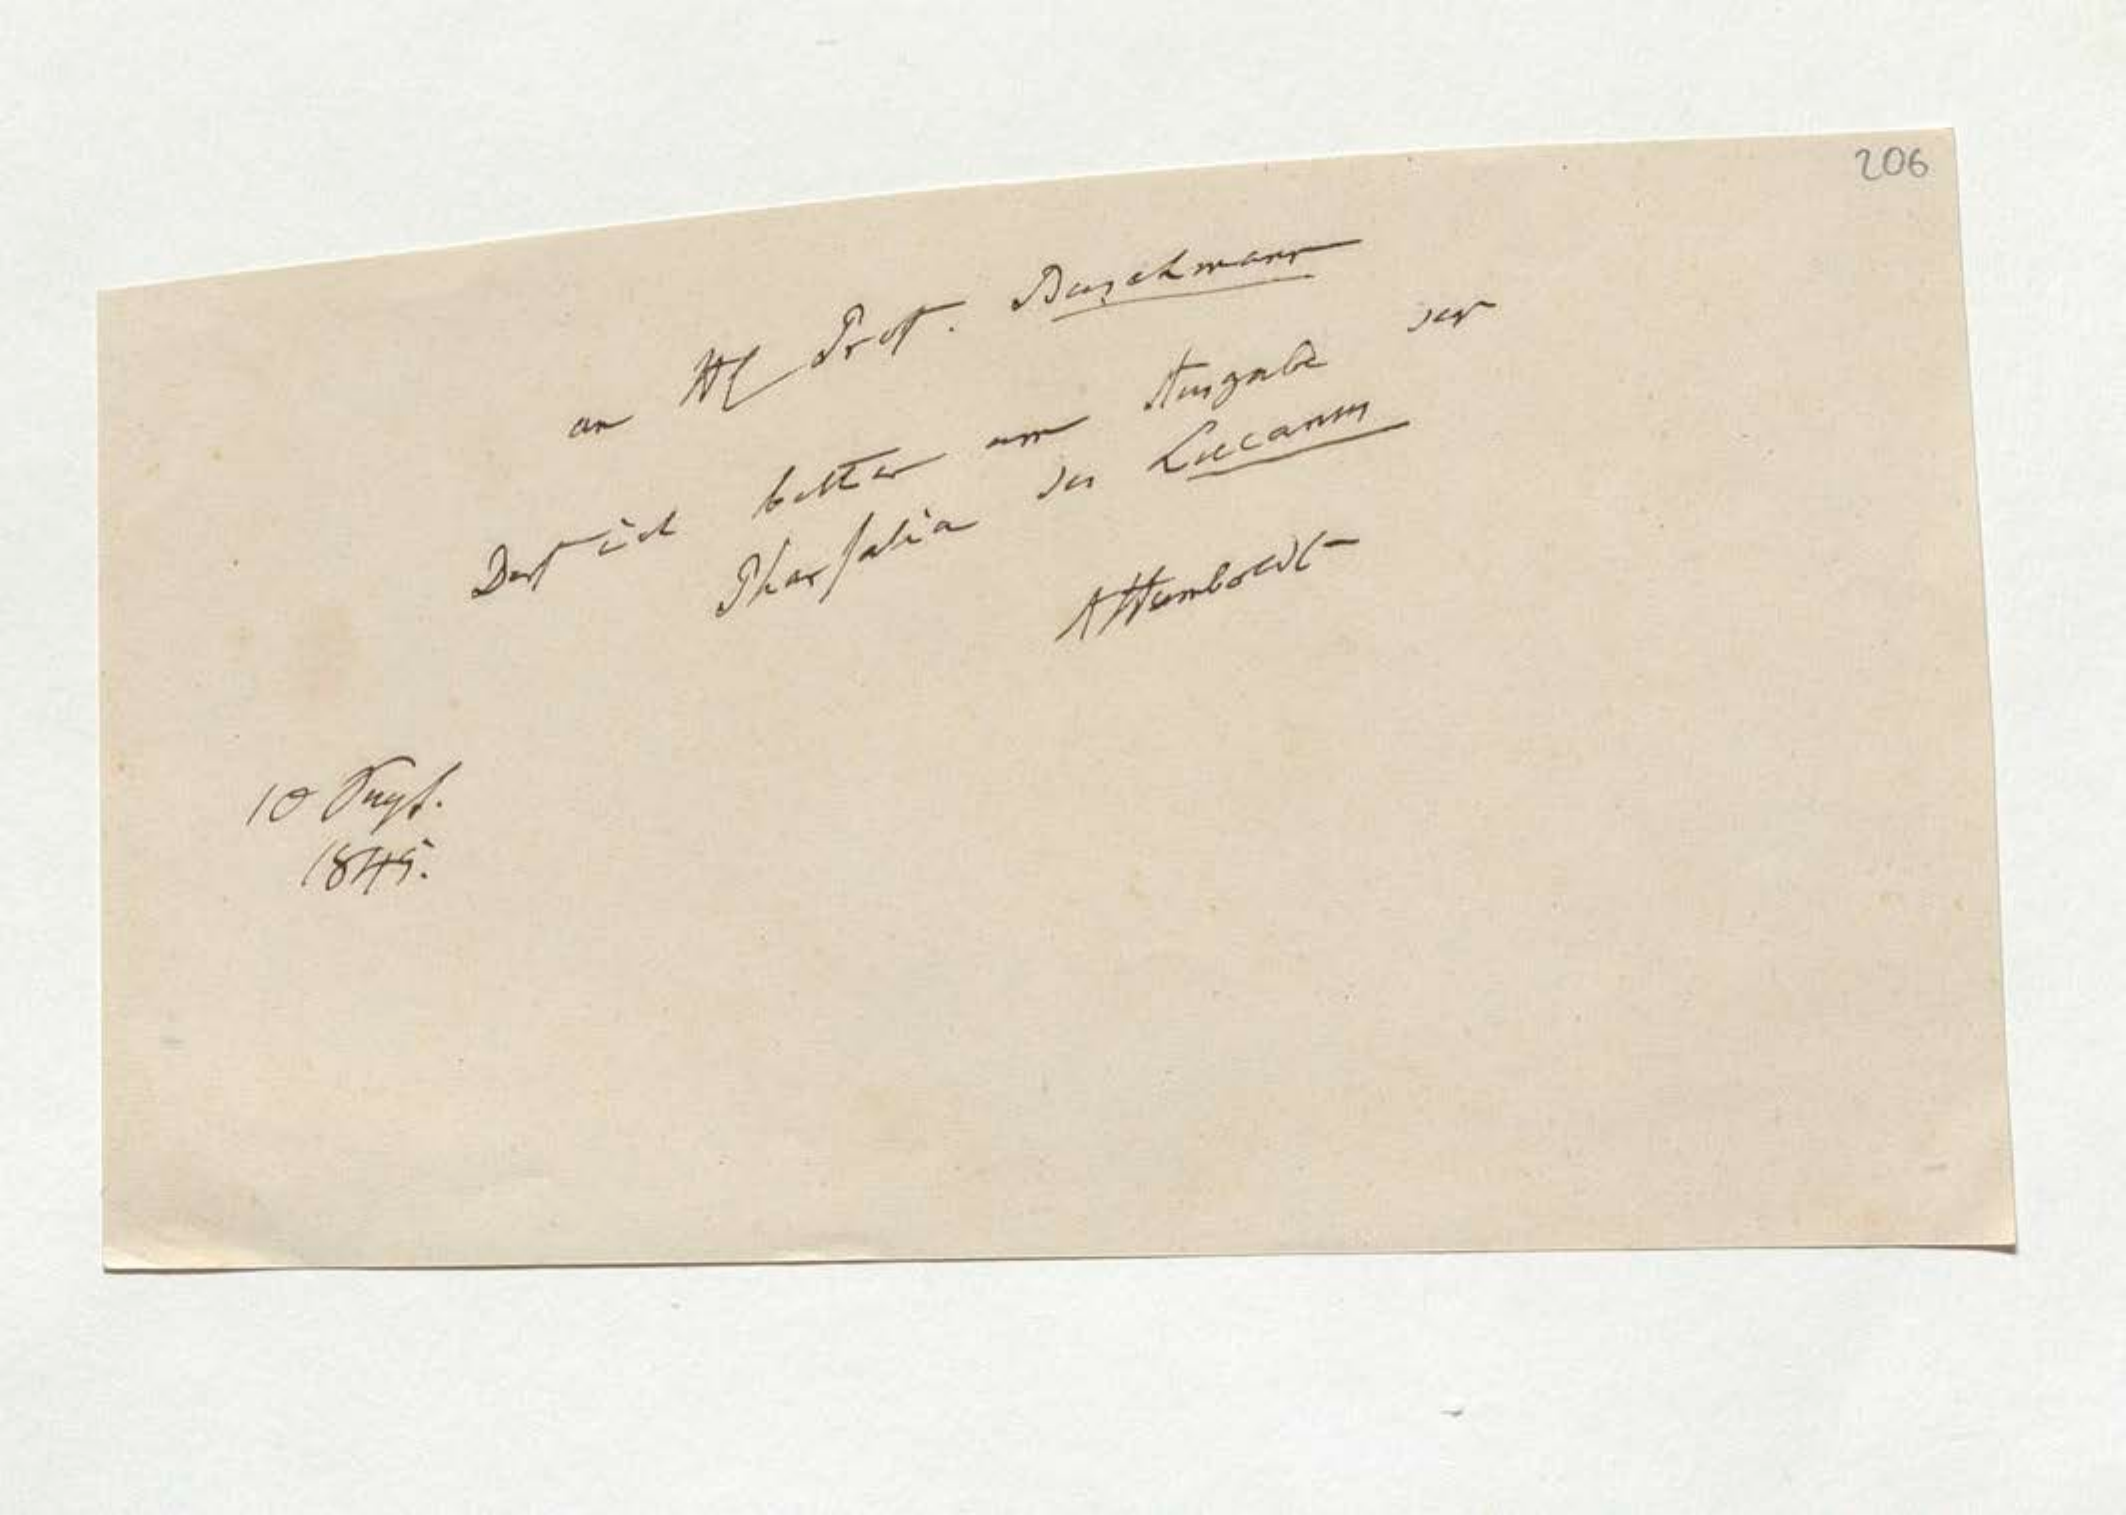 206
an H Prof. Buschmann
Darf ich bitten um Ausgabe der
Pharsalia des Lucanus
AHumboldt
10 Augt.
1845.